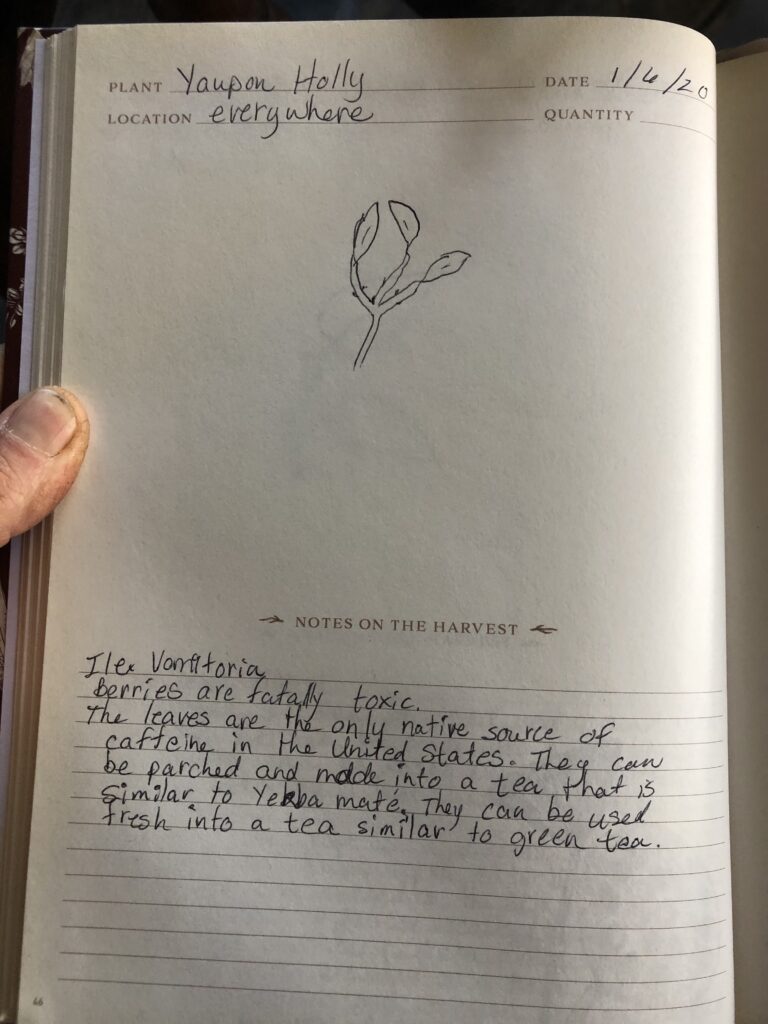 PLANT Yaupon Holly DATE 1/6/20
LOCATION everywhere QUANTITY
NOTES ON THE HARVEST
Ilex Vomitoria
Berries are fatally toxic.
The leaves are the only native source of
caffeine in the United States. They can
be parched and made into a tea that is
similar to Yerba maté. They can be used
fresh into a tea similar to green tea.
46